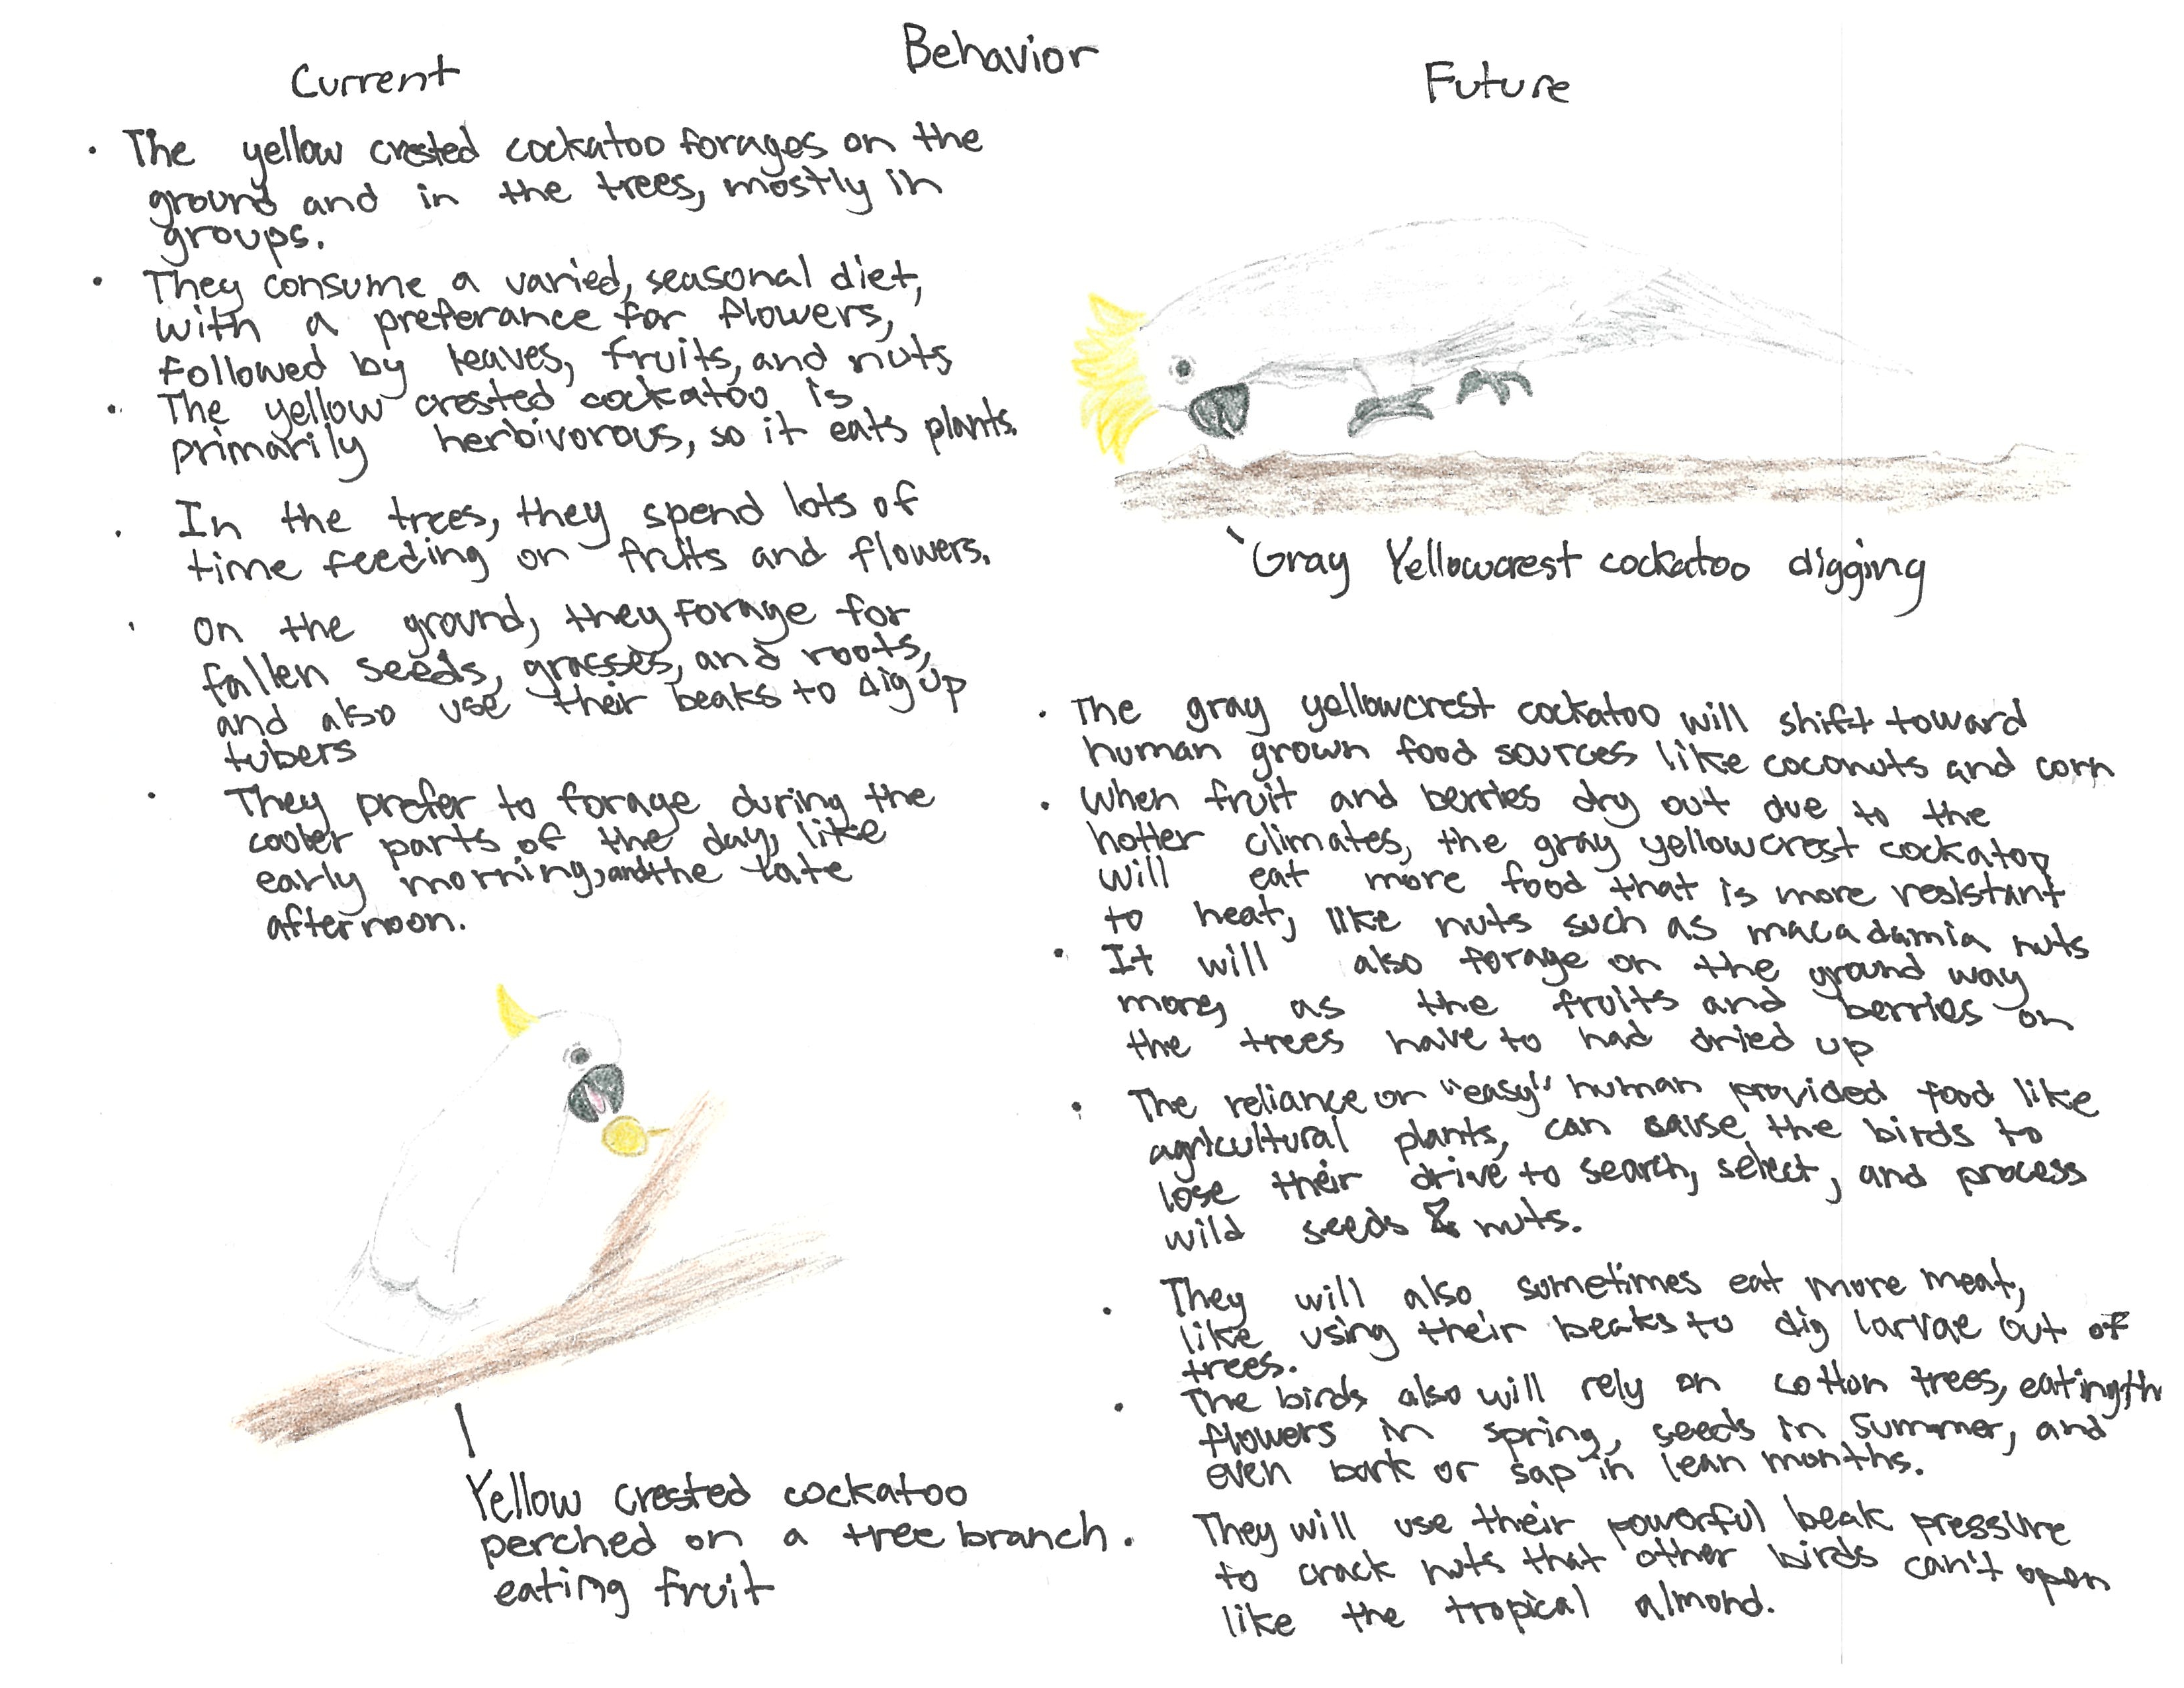 Behavior
Current
• The yellow crested cockatoo forages on the
ground and in the trees, mostly in
groups.
• They consume a varied, seasonal diet,
with a preferance for flowers,
followed by leaves, fruits, and nuts
• The yellow crested cockatoo is
primarily herbivorous, so it eats plants.
• In the trees, they spend lots of
time feeding on fruits and flowers.
• On the ground, they forage for
fallen seeds, grasses, and roots,
and also use their beaks to dig up
tubers
• They prefer to forage during the
cooler parts of the day, like
early morning, and the late
afternoon.
Yellow crested cockatoo
perched on a tree branch
eating fruit
Future
Gray Yellowcrest cockatoo digging
• The gray yellowcrest cockatoo will shift toward
human grown food sources like coconuts and corn
• When fruit and berries dry out due to the
hotter climates, the gray yellowcrest cockatoo
will eat more food that is more resistant
to heat, like nuts such as macadamia nuts
• It will also forage on the ground way
more, as the fruits and berries on
the trees have to had dried up
• The reliance on "easy" human provided food like
agricultural plants, can cause the birds to
lose their drive to search, select, and process
wild seeds & nuts.
• They will also sometimes eat more meat,
like using their beaks to dig larvae out of
trees.
• The birds also will rely on cotton trees, eating th
flowers in spring, seeds in summer, and
even bark or sap in lean months.
• They will use their powerful beak pressure
to crack nuts that other birds can't open
like the tropical almond.